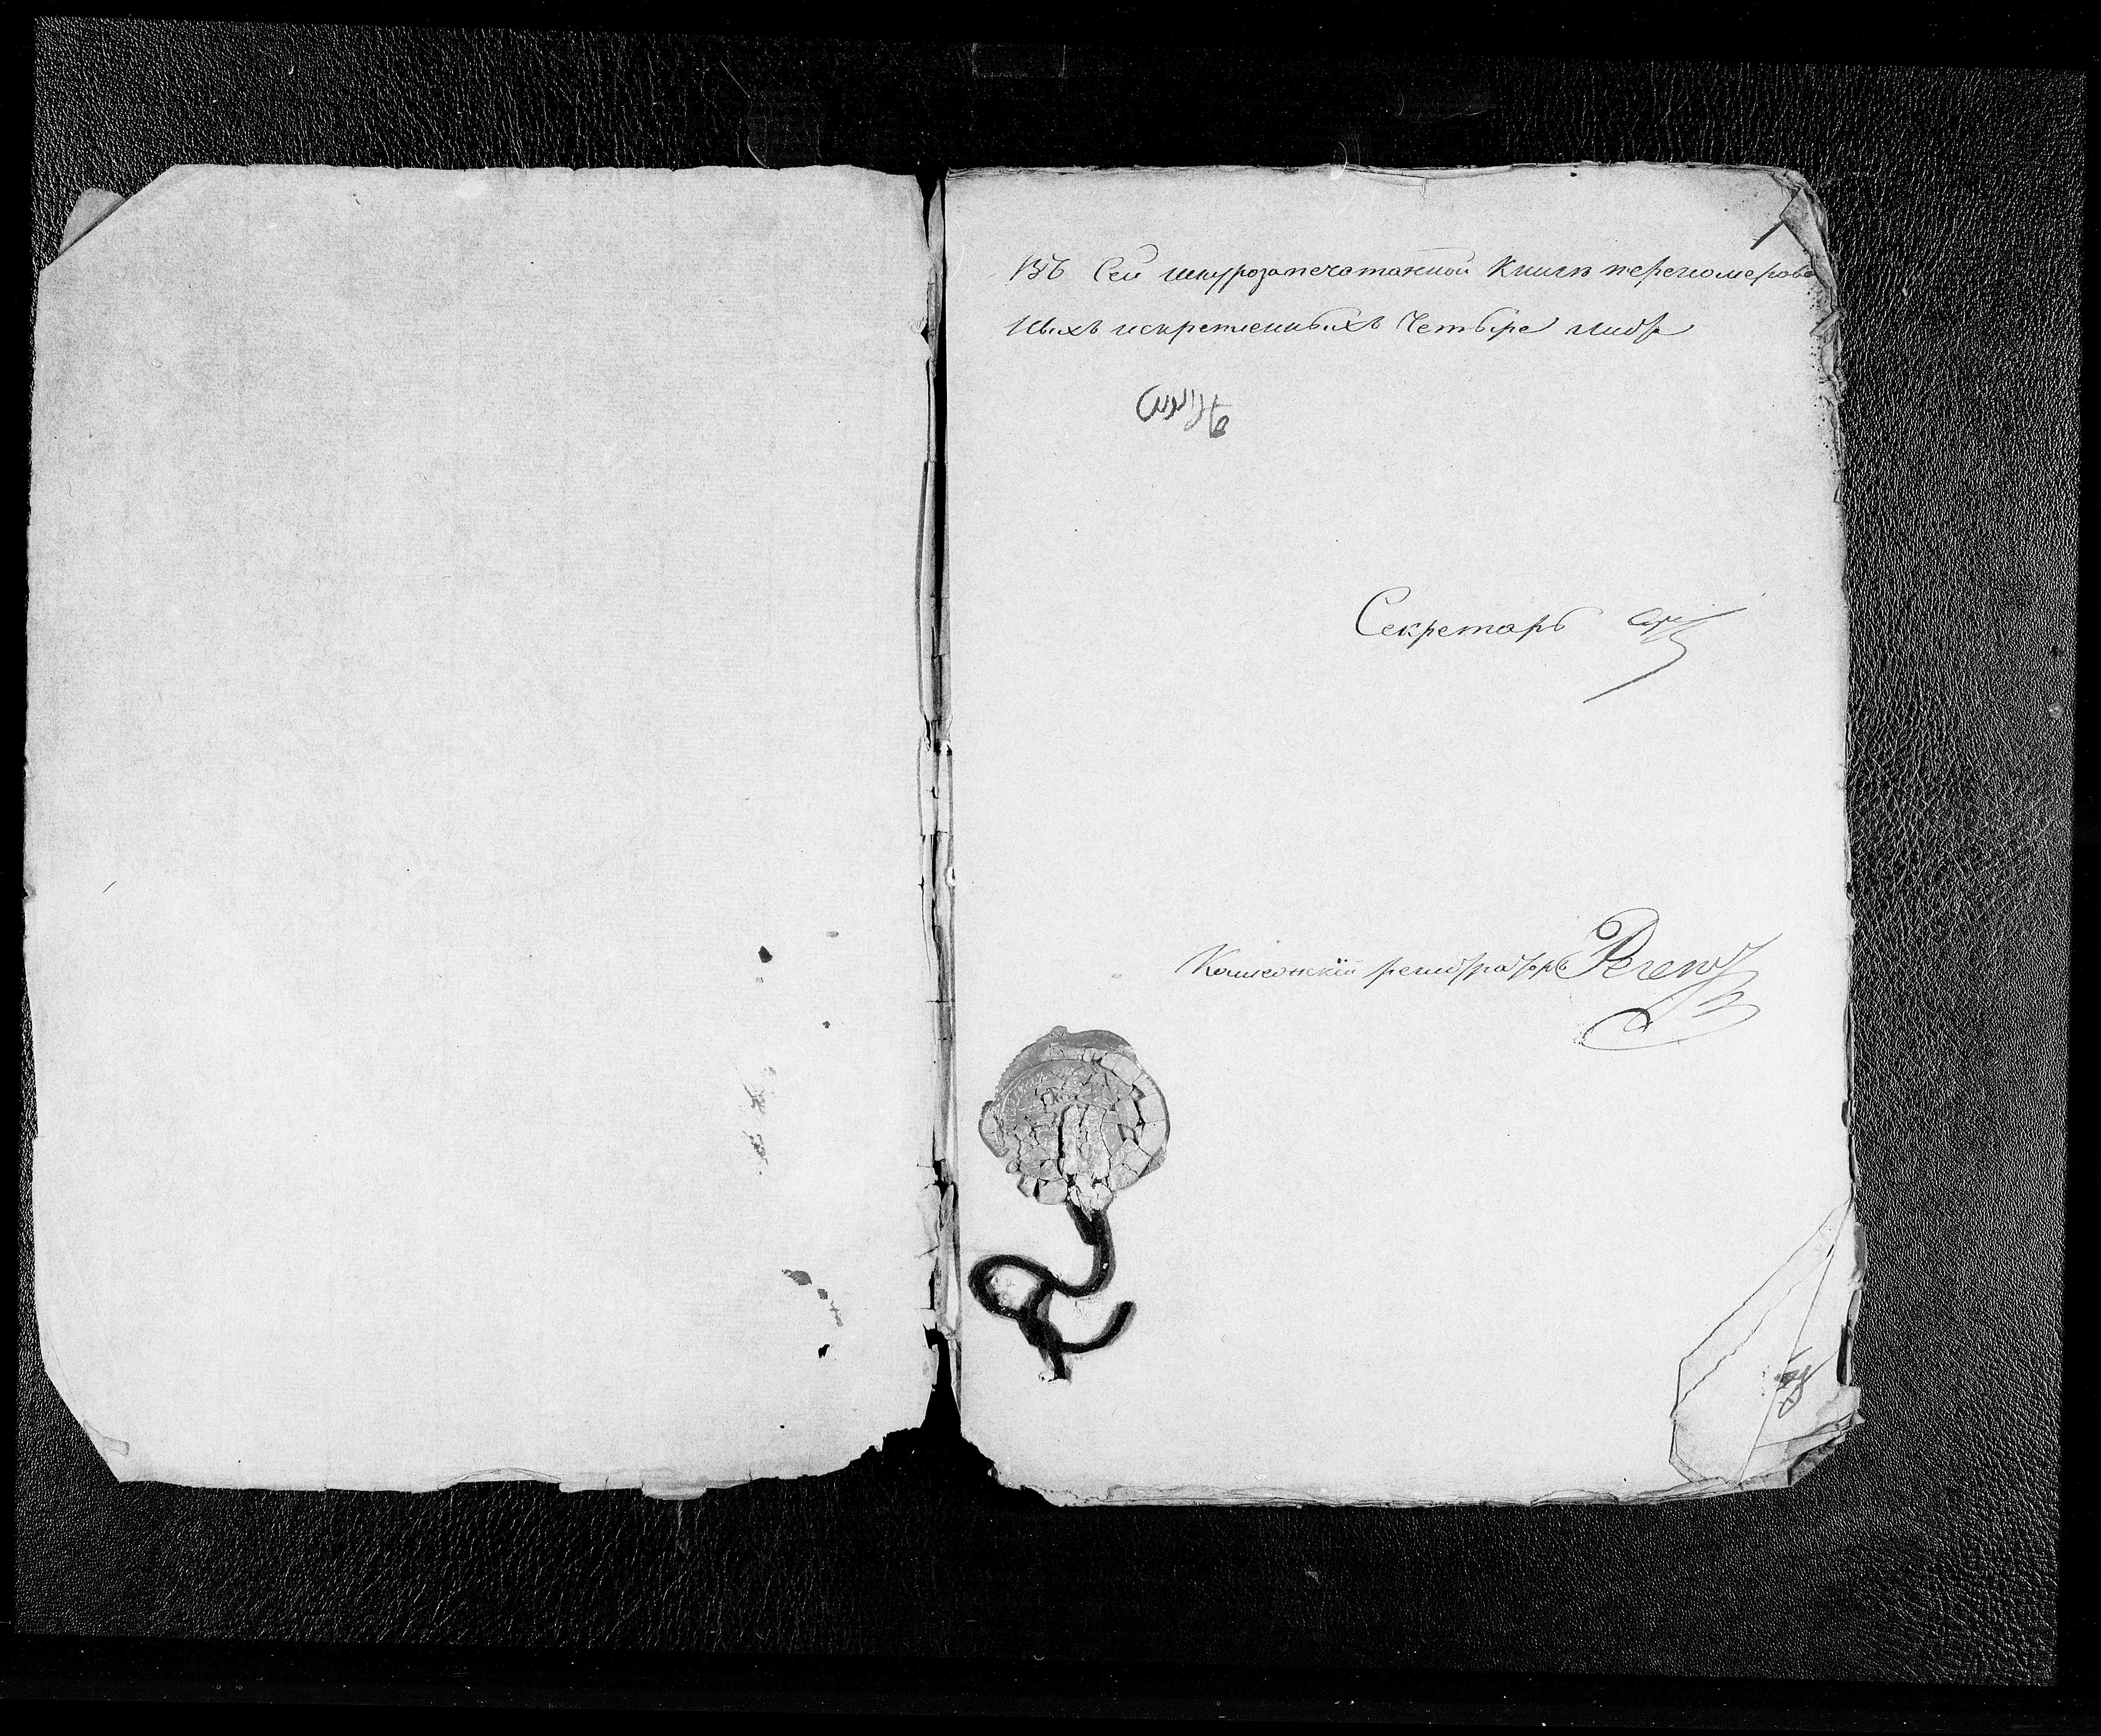 Въ сей шнурозапечатанной книгѣ переномерова
ныхъ искрепленныхъ четыре листа
Секретарь
Коллежскій регистраторъ